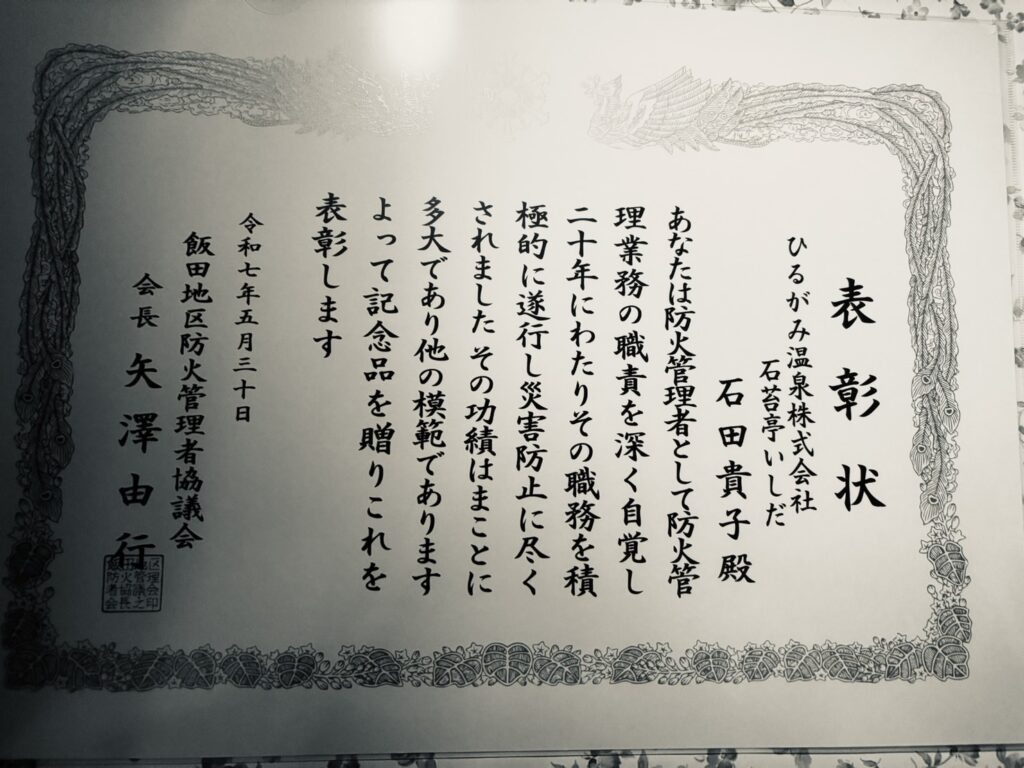 表彰状
ひるがみ温泉株式会社
石苔亭いしだ
石田貴子殿
あなたは防火管理者として防火管
理業務の職責を深く自覚し
二十年にわたりその職務を積
極的に遂行し災害防止に尽く
されました その功績はまことに
多大であり他の模範であります
よって記念品を贈りこれを
表彰します
令和七年五月三十日
飯田地区防火管理者協議会
会長 矢澤由行